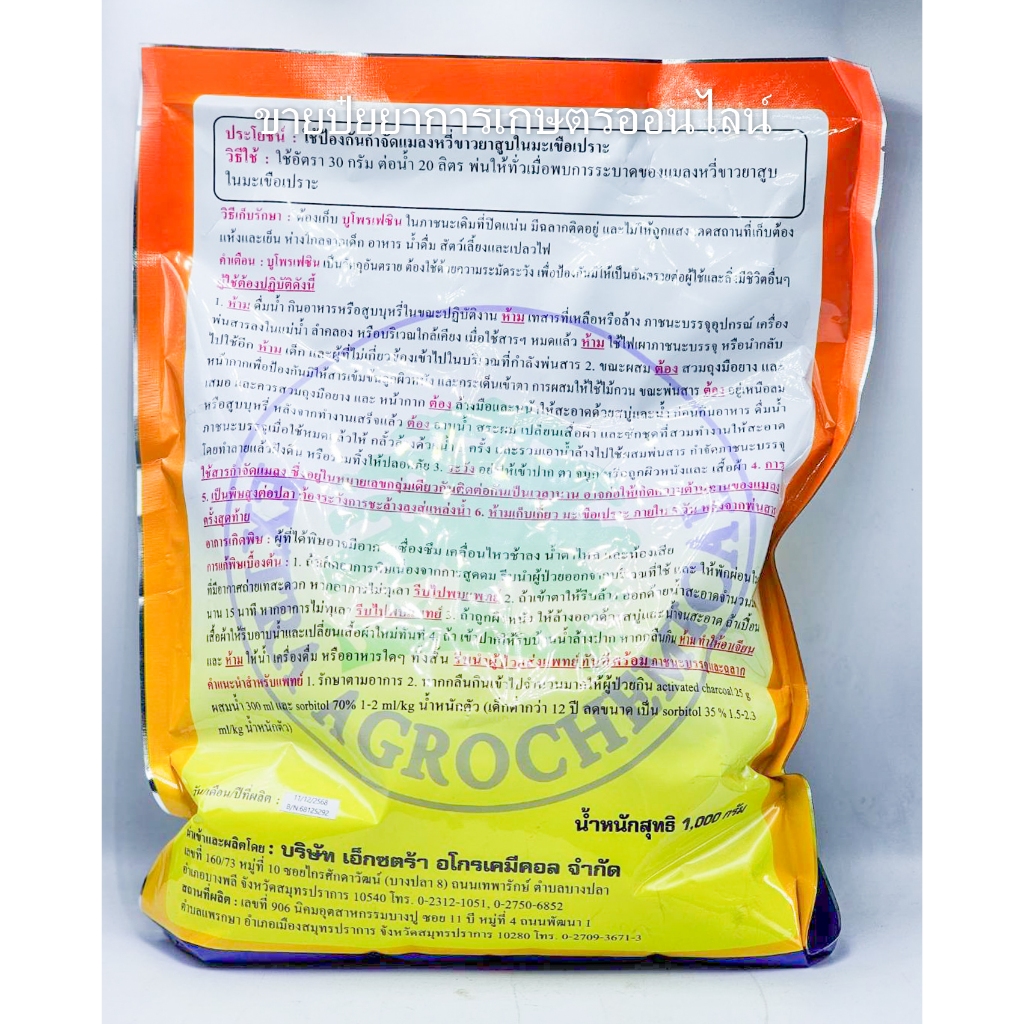 ขายปุ๋ยยาการเกษตรออนไลน์
ประโยชน์ : ใช้ป้องกันกำจัดแมลงหวี่ขาวยาสูบในมะเขือเปราะ
วิธีใช้ : ใช้อัตรา 30 กรัม ต่อน้ำ 20 ลิตร พ่นให้ทั่วเมื่อพบการระบาดของแมลงหวี่ขาวยาสูบ
ในมะเขือเปราะ
วิธีเก็บรักษา : ต้องเก็บ บูโพรเฟซิน ในภาชนะเดิมที่ปิดแน่น มีฉลากติดอยู่ และไม่ให้ถูกแสงแดดสถานที่เก็บต้อง
แห้งและเย็น ห่างไกลจากเด็ก อาหาร น้ำดื่ม สัตว์เลี้ยงและเปลวไฟ
คำเตือน : บูโพรเฟซิน เป็นวัตถุอันตราย ต้องใช้ด้วยความระมัดระวัง เพื่อป้องกันมิให้เป็นอันตรายต่อผู้ใช้และสิ่งมีชีวิตอื่นๆ
ผู้ใช้ต้องปฏิบัติดังนี้
1. ห้าม ดื่มน้ำ กินอาหารหรือสูบบุหรี่ในขณะปฏิบัติงาน ห้าม เทสารที่เหลือหรือล้าง ภาชนะบรรจุอุปกรณ์ เครื่อง
พ่นสารลงในแม่น้ำ ลำคลอง หรือบริเวณใกล้เคียง เมื่อใช้สารฯ หมดแล้ว ห้าม ใช้ไฟเผาภาชนะบรรจุ หรือนำกลับ
ไปใช้อีก ห้าม เด็ก และผู้ที่ไม่เกี่ยวข้องเข้าไปในบริเวณที่กำลังพ่นสาร 2. ขณะผสม ต้อง สวมถุงมือยาง และ
หน้ากากเพื่อป้องกันมิให้สารเข้มข้นถูกผิวหนัง และกระเด็นเข้าตา การผสมให้ใช้ไม้กวน ขณะพ่นสาร ต้อง อยู่เหนือลม
เสมอ และควรสวมถุงมือยาง และ หน้ากาก ต้อง ล้างมือและหน้าให้สะอาดด้วยสบู่และน้ำก่อนกินอาหาร ดื่มน้ำ
หรือสูบบุหรี่ หลังจากทำงานเสร็จแล้ว ต้อง อาบน้ำ สระผม เปลี่ยนเสื้อผ้า และซักชุดที่สวมทำงานให้สะอาด
ภาชนะบรรจุเมื่อใช้หมดแล้วให้ กลั้วล้างด้วยน้ำ ครั้ง และรวมเอาน้ำล้างไปใช้ผสมพ่นสาร กำจัดภาชนะบรรจุ
โดยทำลายแล้วฝังดิน หรือรวมทิ้งให้ปลอดภัย 3. ระวัง อย่าให้เข้าปาก ตา จมูก หรือถูกผิวหนังและ เสื้อผ้า 4. การ
ใช้สารกำจัดแมลง ซึ่งอยู่ในหมายเลขกลุ่มเดียวกันติดต่อกันเป็นเวลานาน อาจก่อให้เกิดความต้านทานของแมลง
5. เป็นพิษสูงต่อปลา ต้องระวังการชะล้างลงสู่แหล่งน้ำ 6. ห้ามเก็บเกี่ยว มะเขือเปราะ ภายใน วัน หลังจากพ่นสาร
ครั้งสุดท้าย
อาการเกิดพิษ : ผู้ที่ได้พิษอาจมีอาการ เซื่องซึม เคลื่อนไหวช้าลง น้ำตาไหล และท้องเสีย
การแก้พิษเบื้องต้น : 1. ถ้าเกิดอาการพิษเนื่องจากการสูดดม รีบนำผู้ป่วยออกจากบริเวณที่ใช้ และ ให้พักผ่อนใน
ที่มีอากาศถ่ายเทสะดวก หากอาการไม่ทุเลา รีบไปพบแพทย์ 2. ถ้าเข้าตาให้รีบล้างออกด้วยน้ำสะอาดจำนวน
นาน 15 นาที หากอาการไม่ทุเลา รีบไปพบแพทย์ 3. ถ้าถูกผิวหนัง ให้ล้างออกด้วยสบู่และน้ำจนสะอาด ถ้าเปื้อน
เสื้อผ้าให้รีบอาบน้ำและเปลี่ยนเสื้อผ้าใหม่ทันที 4. ถ้า เข้าปากให้รีบบ้วนน้ำล้างปาก หากกลืนกิน ห้ามทำให้อาเจียน
และ ห้าม ให้น้ำ เครื่องดื่ม หรืออาหารใดๆ ทั้งสิ้น รีบนำผู้ป่วยส่งแพทย์ทันทีพร้อม ภาชนะบรรจุและฉลาก
คำแนะนำสำหรับแพทย์ 1. รักษาตามอาการ 2. หากกลืนกินเข้าไปจำนวนมากให้ผู้ป่วยกิน activated charcoal 25 g
ผสมน้ำ 300 ml และ sorbitol 70% 1-2 ml/kg น้ำหนักตัว (เด็กต่ำกว่า 12 ปี ลดขนาด เป็น sorbitol 35 % 1.5-2.3
ml/kg น้ำหนักตัว)
EXTRA AGROCHEMICAL
วัน/เดือน/ปีที่ผลิต :
11/12/2568
B/N.68125292
น้ำหนักสุทธิ 1,000 กรัม
นำเข้าและผลิตโดย : บริษัท เอ็กซตร้า อโกรเคมีคอล จำกัด
เลขที่ 160/73 หมู่ที่ 10 ซอยไกรศักดาวัฒน์ (บางปลา 8) ถนนเทพารักษ์ ตำบลบางปลา
อำเภอบางพลี จังหวัดสมุทรปราการ 10540 โทร. 0-2312-1051, 0-2750-6852
สถานที่ผลิต : เลขที่ 906 นิคมอุตสาหกรรมบางปู ซอย 11 บี หมู่ที่ 4 ถนนพัฒนา 1
ตำบลแพรกษา อำเภอเมืองสมุทรปราการ จังหวัดสมุทรปราการ 10280 โทร. 0-2709-3671-3